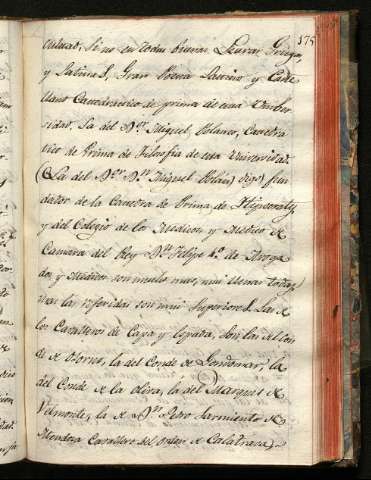 175
cultad, sino en todas buenas Letras Griegas,
y Latinas, Gran Poeta Latino y Caste
llano Catedratico de prima de esta Univer
sidad. La del Dor. Miguel Polanco, Catedra
tico de Prima de Filosofia de esta Universidad.
(La del Dor. Dn. Miguel Polan) fun
dador de la Catedra de Prima de
y del Colegio de los Medicos y Medico de
Camara del Rey Dn. Felipe 4o. de Aboga
dos y Medicos son mucho mas, mui buenas todas,
mas las referidas son mui Superiores. Las de
los Cavalleros de Capa y espada, son las
de de Osorio, la del Conde de Gondomar, la
del Conde de la Oliva, la del Marques de
Velmonte, la de Dn. Pedro Sarmiento de
Mendoza Cavallero del Orden de Calatrava,